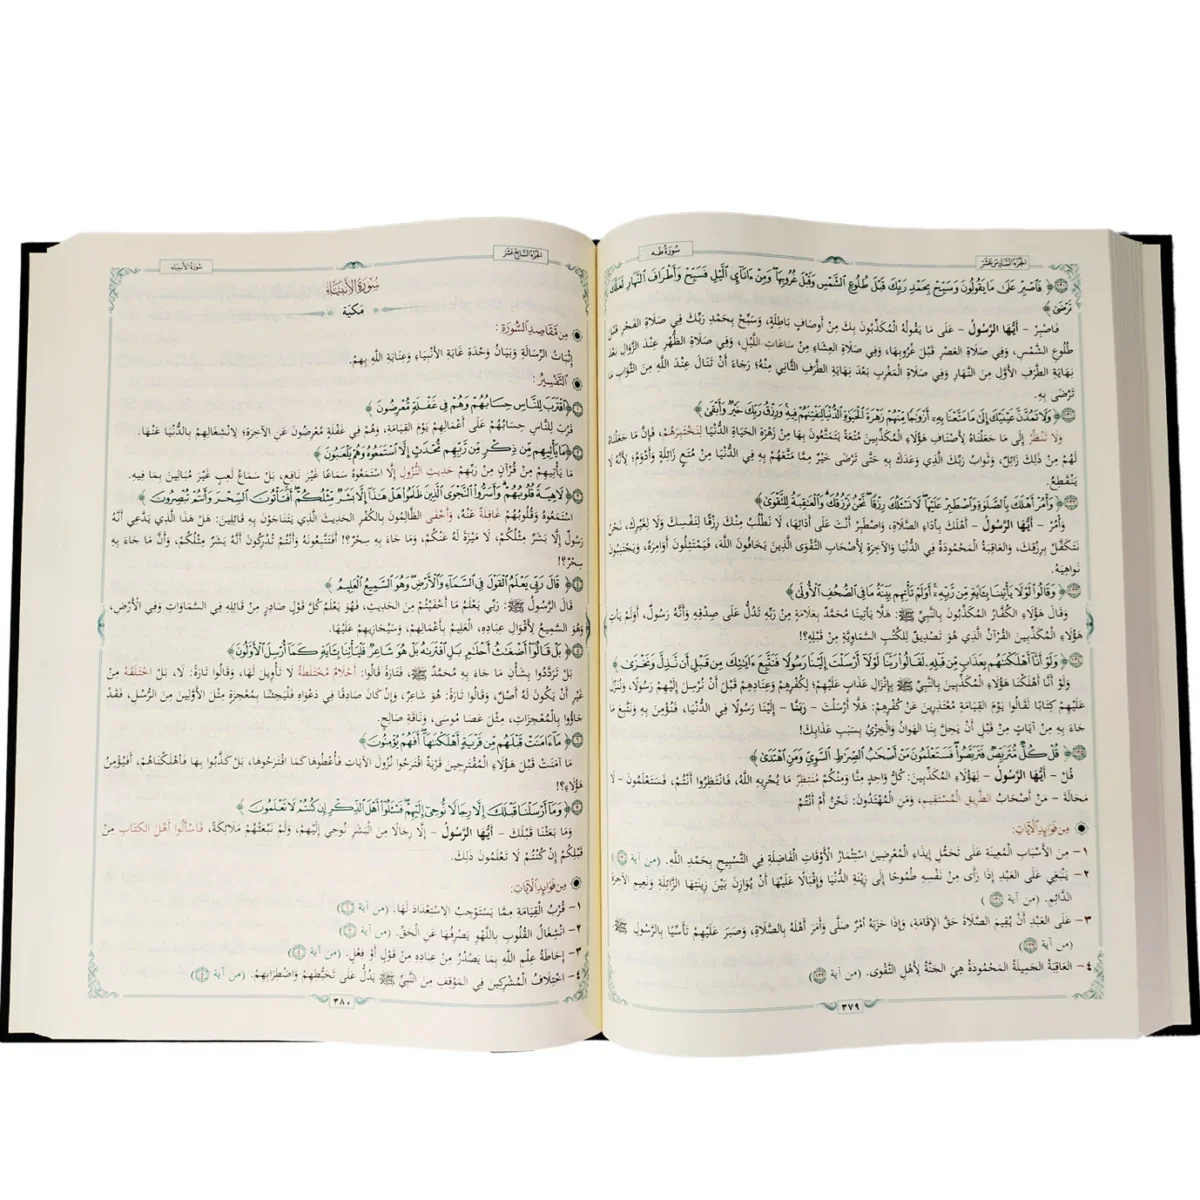 الجزء السادس عشر
سورة طه
﴿ فَاصْبِرْ عَلَىٰ مَا يَقُولُونَ وَسَبِّحْ بِحَمْدِ رَبِّكَ قَبْلَ طُلُوعِ الشَّمْسِ وَقَبْلَ غُرُوبِهَا ۖ وَمِنْ آنَاءِ اللَّيْلِ فَسَبِّحْ وَأَطْرَافَ النَّهَارِ لَعَلَّكَ
تَرْضَىٰ ﴾
فَاصْبِرْ - أَيُّهَا الرَّسُولُ - عَلَى مَا يَقُولُهُ الْمُكَذِّبُونَ بِكَ مِنْ أَوْصَافٍ بَاطِلَةٍ، وَسَبِّحْ بِحَمْدِ رَبِّكَ فِي صَلَاةِ الفَجْرِ قَبْلَ
طُلُوعِ الشَّمْسِ، وَفِي صَلَاةِ العَصْرِ قَبْلَ غُرُوبِهَا، وَفِي صَلَاةِ العِشَاءِ مِنْ سَاعَاتِ اللَّيْلِ، وَفِي صَلَاةِ الظُّهْرِ عِنْدَ الزَّوَالِ بَعْدَ
نِهَايَةِ الطَّرَفِ الأَوَّلِ مِنَ النَّهَارِ وَفِي صَلَاةِ المَغْرِبِ بَعْدَ نِهَايَةِ الطَّرَفِ الثَّانِي مِنْهُ؛ رَجَاءَ أَنْ تَنَالَ عِنْدَ اللَّهِ مِنَ الثَّوَابِ مَا
تَرْضَى بِهِ.
﴿ وَلَا تَمُدَّنَّ عَيْنَيْكَ إِلَىٰ مَا مَتَّعْنَا بِهِ أَزْوَاجًا مِنْهُمْ زَهْرَةَ الْحَيَاةِ الدُّنْيَا لِنَفْتِنَهُمْ فِيهِ ۚ وَرِزْقُ رَبِّكَ خَيْرٌ وَأَبْقَىٰ ﴾
وَلَا تَنْظُرْ إِلَى مَا جَعَلْنَاهُ لِأَصْنَافِ هَؤُلَاءِ الْمُكَذِّبِينَ مُتْعَةً يَتَمَتَّعُونَ بِهَا مِنْ زَهْرَةِ الحَيَاةِ الدُّنْيَا لِنَخْتَبِرَهُمْ، فَإِنَّ مَا جَعَلْنَاهُ
لَهُمْ مِنْ ذَلِكَ زَائِلٌ، وَثَوَابُ رَبِّكَ الَّذِي وَعَدَكَ بِهِ حَتَّى تَرْضَى خَيْرٌ مِمَّا مَتَّعَهُمْ بِهِ فِي الدُّنْيَا مِنْ مُتَعٍ زَائِلَةٍ وَأَدْوَمُ؛ لِأَنَّهُ لَا
يَنْقَطِعُ.
﴿ وَأْمُرْ أَهْلَكَ بِالصَّلَاةِ وَاصْطَبِرْ عَلَيْهَا ۖ لَا نَسْأَلُكَ رِزْقًا ۖ نَحْنُ نَرْزُقُكَ ۗ وَالْعَاقِبَةُ لِلتَّقْوَىٰ ﴾
وَأْمُرْ - أَيُّهَا الرَّسُولُ - أَهْلَكَ بِأَدَاءِ الصَّلَاةِ، وَاصْطَبِرْ أَنْتَ عَلَى أَدَائِهَا، لَا نَطْلُبُ مِنْكَ رِزْقًا لِنَفْسِكَ وَلَا لِغَيْرِكَ، نَحْنُ
نَتَكَفَّلُ بِرِزْقِكَ، وَالعَاقِبَةُ الْمَحْمُودَةُ فِي الدُّنْيَا وَالآخِرَةِ لِأَصْحَابِ التَّقْوَى الَّذِينَ يَخَافُونَ اللَّهَ، فَيَمْتَثِلُونَ أَوَامِرَهُ، وَيَجْتَنِبُونَ
نَوَاهِيَهُ.
﴿ وَقَالُوا لَوْلَا يَأْتِينَا بِآيَةٍ مِنْ رَبِّهِ ۚ أَوَلَمْ تَأْتِهِمْ بَيِّنَةُ مَا فِي الصُّحُفِ الْأُولَىٰ ﴾
وَقَالَ هَؤُلَاءِ الكُفَّارُ الْمُكَذِّبُونَ بِالنَّبِيِّ ﷺ: هَلَّا يَأْتِينَا مُحَمَّدٌ بِعَلَامَةٍ مِنْ رَبِّهِ تَدُلُّ عَلَى صِدْقِهِ وَأَنَّهُ رَسُولٌ، أَوَلَمْ يَأْتِ
هَؤُلَاءِ الْمُكَذِّبِينَ القُرْآنُ الَّذِي هُوَ تَصْدِيقٌ لِلْكُتُبِ السَّمَاوِيَّةِ مِنْ قَبْلِهِ؟!
﴿ وَلَوْ أَنَّا أَهْلَكْنَاهُمْ بِعَذَابٍ مِنْ قَبْلِهِ لَقَالُوا رَبَّنَا لَوْلَا أَرْسَلْتَ إِلَيْنَا رَسُولًا فَنَتَّبِعَ آيَاتِكَ مِنْ قَبْلِ أَنْ نَذِلَّ وَنَخْزَىٰ ﴾
وَلَوْ أَنَّا أَهْلَكْنَا هَؤُلَاءِ الْمُكَذِّبِينَ بِالنَّبِيِّ ﷺ بِإِنْزَالِ عَذَابٍ عَلَيْهِمْ؛ لِكُفْرِهِمْ وَعِنَادِهِمْ قَبْلَ أَنْ نُرْسِلَ إِلَيْهِمْ رَسُولًا، وَنُنَزِّلَ
عَلَيْهِمْ كِتَابًا لَقَالُوا يَوْمَ القِيَامَةِ مُعْتَذِرِينَ عَنْ كُفْرِهِمْ: هَلَّا أَرْسَلْتَ - رَبَّنَا - إِلَيْنَا رَسُولًا فِي الدُّنْيَا، فَنُؤْمِنَ بِهِ وَنَتَّبِعَ مَا
جَاءَ بِهِ مِنْ آيَاتٍ مِنْ قَبْلِ أَنْ يَحِلَّ بِنَا الهَوَانُ وَالخِزْيُ بِسَبَبِ عَذَابِكَ!
﴿ قُلْ كُلٌّ مُتَرَبِّصٌ فَتَرَبَّصُوا ۖ فَسَتَعْلَمُونَ مَنْ أَصْحَابُ الصِّرَاطِ السَّوِيِّ وَمَنِ اهْتَدَىٰ ﴾
قُلْ - أَيُّهَا الرَّسُولُ - لِهَؤُلَاءِ الْمُكَذِّبِينَ: كُلُّ وَاحِدٍ مِنَّا وَمِنْكُمْ مُنْتَظِرٌ مَا يُجْرِيهِ اللَّهُ، فَانْتَظِرُوا أَنْتُمْ، فَسَتَعْلَمُونَ - لَا
مَحَالَةَ - مَنْ أَصْحَابُ الطَّرِيقِ الْمُسْتَقِيمِ، وَمَنِ الْمُهْتَدُونَ: نَحْنُ أَمْ أَنْتُمْ
مِن فَوَائِدِ الآيَاتِ:
١- مِنَ الأَسْبَابِ الْمُعِينَةِ عَلَى تَحَمُّلِ إِيذَاءِ الْمُعْرِضِينَ اسْتِثْمَارُ الأَوْقَاتِ الفَاضِلَةِ فِي التَّسْبِيحِ بِحَمْدِ اللَّهِ. (من آية ١٣٠)
٢- يَنْبَغِي عَلَى العَبْدِ إِذَا رَأَى مِنْ نَفْسِهِ طُمُوحًا إِلَى زِينَةِ الدُّنْيَا وَإِقْبَالًا عَلَيْهَا أَنْ يُوَازِنَ بَيْنَ زِينَتِهَا الزَّائِلَةِ وَنَعِيمِ الآخِرَةِ
الدَّائِمِ. (من آية ١٣١)
٣- عَلَى العَبْدِ أَنْ يُقِيمَ الصَّلَاةَ حَقَّ الإِقَامَةِ، وَإِذَا حَزَبَهُ أَمْرٌ صَلَّى وَأَمَرَ أَهْلَهُ بِالصَّلَاةِ، وَصَبَرَ عَلَيْهِمْ تَأَسِّيًا بِالرَّسُولِ ﷺ
(من آية ١٣٢)
٤- العَاقِبَةُ الجَمِيلَةُ الْمَحْمُودَةُ هِيَ الجَنَّةُ لِأَهْلِ التَّقْوَى. (من آية ١٣٢)
٣٧٩
الجزء السابع عشر
سورة الأنبياء
سُورَةُ الأَنْبِيَاءِ
مَكِّيَّة
مِن مَقَاصِدِ السُّورَةِ:
إِثْبَاتُ الرِّسَالَةِ وَبَيَانُ وَحْدَةِ غَايَةِ الأَنْبِيَاءِ وَعِنَايَةِ اللَّهِ بِهِمْ.
التَّفْسِيرُ:
١ ﴿ اقْتَرَبَ لِلنَّاسِ حِسَابُهُمْ وَهُمْ فِي غَفْلَةٍ مُعْرِضُونَ ﴾
قَرُبَ لِلنَّاسِ حِسَابُهُمْ عَلَى أَعْمَالِهِمْ يَوْمَ القِيَامَةِ، وَهُمْ فِي غَفْلَةٍ مُعْرِضُونَ عَنِ الآخِرَةِ؛ لانْشِغَالِهِمْ بِالدُّنْيَا عَنْهَا.
٢ ﴿ مَا يَأْتِيهِمْ مِنْ ذِكْرٍ مِنْ رَبِّهِمْ مُحْدَثٍ إِلَّا اسْتَمَعُوهُ وَهُمْ يَلْعَبُونَ ﴾
مَا يَأْتِيهِمْ مِنْ قُرْآنٍ مِنْ رَبِّهِمْ حَدِيثِ النُّزُولِ إِلَّا اسْتَمَعُوهُ سَمَاعًا غَيْرَ نَافِعٍ، بَلْ سَمَاعُ لَعِبٍ غَيْرَ مُبَالِينَ بِمَا فِيهِ.
٣ ﴿ لَاهِيَةً قُلُوبُهُمْ ۗ وَأَسَرُّوا النَّجْوَى الَّذِينَ ظَلَمُوا هَلْ هَٰذَا إِلَّا بَشَرٌ مِثْلُكُمْ ۖ أَفَتَأْتُونَ السِّحْرَ وَأَنْتُمْ تُبْصِرُونَ ﴾
اسْتَمَعُوهُ وَقُلُوبُهُمْ غَافِلَةٌ عَنْهُ، وَأَخْفَى الظَّالِمُونَ بِالكُفْرِ الحَدِيثَ الَّذِي يَتَنَاجَوْنَ بِهِ قَائِلِينَ: هَلْ هَذَا الَّذِي يَدَّعِي أَنَّهُ
رَسُولٌ إِلَّا بَشَرٌ مِثْلُكُمْ، لَا مَيْزَةَ لَهُ عَنْكُمْ، وَمَا جَاءَ بِهِ سِحْرٌ؟! أَفَتَتَّبِعُونَهُ وَأَنْتُمْ تُدْرِكُونَ أَنَّهُ بَشَرٌ مِثْلُكُمْ، وَأَنَّ مَا جَاءَ بِهِ
سِحْرٌ؟!
٤ ﴿ قَالَ رَبِّي يَعْلَمُ الْقَوْلَ فِي السَّمَاءِ وَالْأَرْضِ ۖ وَهُوَ السَّمِيعُ الْعَلِيمُ ﴾
قَالَ الرَّسُولُ ﷺ: رَبِّي يَعْلَمُ مَا أَخْفَيْتُمْ مِنَ الحَدِيثِ، فَهُوَ يَعْلَمُ كُلَّ قَوْلٍ صَادِرٍ مِنْ قَائِلِهِ فِي السَّمَاوَاتِ وَفِي الأَرْضِ،
وَهُوَ السَّمِيعُ لِأَقْوَالِ عِبَادِهِ، العَلِيمُ بِأَعْمَالِهِمْ، وَسَيُجَازِيهِمْ عَلَيْهَا.
٥ ﴿ بَلْ قَالُوا أَضْغَاثُ أَحْلَامٍ بَلِ افْتَرَاهُ بَلْ هُوَ شَاعِرٌ فَلْيَأْتِنَا بِآيَةٍ كَمَا أُرْسِلَ الْأَوَّلُونَ ﴾
بَلْ تَرَدَّدُوا بِشَأْنِ مَا جَاءَ بِهِ مُحَمَّدٌ ﷺ، فَتَارَةً قَالُوا: أَحْلَامٌ مُخْتَلِطَةٌ لَا تَأْوِيلَ لَهَا، وَقَالُوا تَارَةً: لَا، بَلْ اخْتَلَقَهُ مِنْ
غَيْرِ أَنْ يَكُونَ لَهُ أَصْلٌ، وَقَالُوا تَارَةً: هُوَ شَاعِرٌ، وَإِنْ كَانَ صَادِقًا فِي دَعْوَاهُ فَلْيَجِئْنَا بِمُعْجِزَةٍ مِثْلَ الأَوَّلِينَ مِنَ الرُّسُلِ، فَقَدْ
جَاؤُوا بِالْمُعْجِزَاتِ، مِثْلَ عَصَا مُوسَى، وَنَاقَةِ صَالِحٍ.
٦ ﴿ مَا آمَنَتْ قَبْلَهُمْ مِنْ قَرْيَةٍ أَهْلَكْنَاهَا ۖ أَفَهُمْ يُؤْمِنُونَ ﴾
مَا آمَنَتْ قَبْلَ هَؤُلَاءِ الْمُقْتَرِحِينَ قَرْيَةٌ اقْتَرَحُوا نُزُولَ الآيَاتِ فَأُعْطُوهَا كَمَا اقْتَرَحُوهَا، بَلْ كَذَّبُوا بِهَا فَأَهْلَكْنَاهُمْ، أَفَيُؤْمِنُ
هَؤُلَاءِ؟!
٧ ﴿ وَمَا أَرْسَلْنَا قَبْلَكَ إِلَّا رِجَالًا نُوحِي إِلَيْهِمْ ۖ فَاسْأَلُوا أَهْلَ الذِّكْرِ إِنْ كُنْتُمْ لَا تَعْلَمُونَ ﴾
وَمَا بَعَثْنَا قَبْلَكَ - أَيُّهَا الرَّسُولُ - إِلَّا رِجَالًا مِنَ البَشَرِ نُوحِي إِلَيْهِمْ، وَلَمْ نَبْعَثْهُمْ مَلَائِكَةً، فَاسْأَلُوا أَهْلَ الكِتَابِ مِنْ
قَبْلِكُمْ إِنْ كُنْتُمْ لَا تَعْلَمُونَ ذَلِكَ.
مِن فَوَائِدِ الآيَاتِ:
١- قُرْبُ القِيَامَةِ مِمَّا يَسْتَوْجِبُ الاسْتِعْدَادَ لَهَا. (من آية ١)
٢- انْشِغَالُ القُلُوبِ بِاللَّهْوِ يَصْرِفُهَا عَنِ الحَقِّ. (من آية ٣)
٣- إِحَاطَةُ عِلْمِ اللَّهِ بِمَا يَصْدُرُ مِنْ عِبَادِهِ مِنْ قَوْلٍ أَوْ فِعْلٍ. (من آية ٤)
٤- اخْتِلَافُ الْمُشْرِكِينَ فِي الْمَوْقِفِ مِنَ النَّبِيِّ ﷺ يَدُلُّ عَلَى تَخَبُّطِهِمْ وَاضْطِرَابِهِمْ. (من آية ٥)
٣٨٠